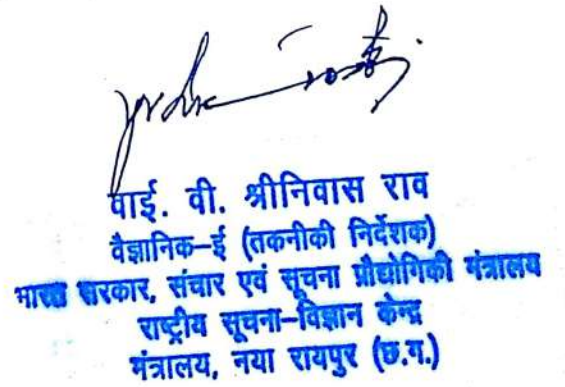 वाई. वी. श्रीनिवास राव
वैज्ञानिक–ई (तकनीकी निर्देशक)
भारत सरकार, संचार एवं सूचना प्रौद्योगिकी मंत्रालय
राष्ट्रीय सूचना–विज्ञान केन्द्र
मंत्रालय, नया रायपुर (छ.ग.)